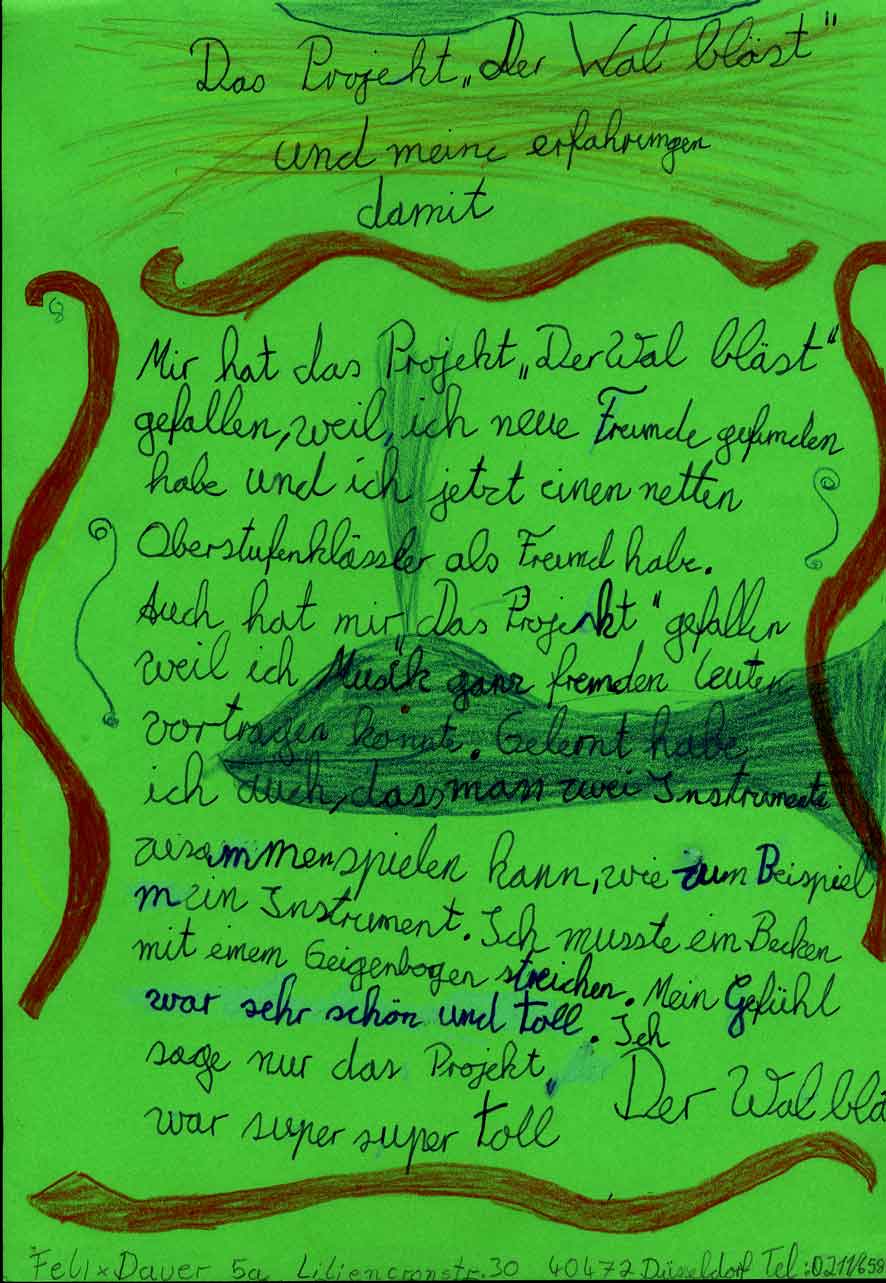 Das Projekt „Der Wal bläst"
und meine erfahrungen
damit
Mir hat das Projekt „Der Wal bläst"
gefallen, weil, ich neue Freunde gefunden
habe und ich jetzt einen netten
Oberstufenklässler als Freund habe.
Auch hat mir „Das Projekt" gefallen
weil ich Musik ganz fremden Leuten
vortragen konnte. Gelernt habe
ich auch, dass man zwei Instrumente
zusammenspielen kann, wie zum Beispiel
mein Instrument. Ich musste ein Becken
mit einem Geigenbogen streichen. Mein Gefühl
war sehr schön und toll. Ich
sage nur das Projekt „Der Wal blä
war super super toll
Felix Dauer 5a Liliencronstr. 30 40472 Düsseldorf Tel: 0211/658